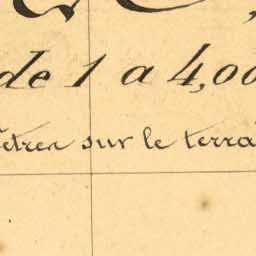 de 1 a 4,00
ètres sur le terra